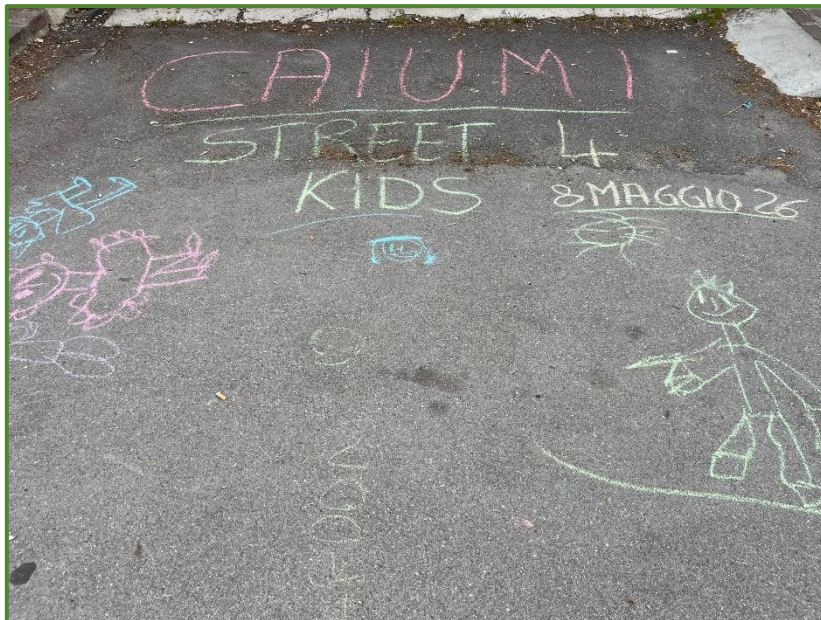 CAIUMI
STREET 4
KIDS
8 MAGGIO 26